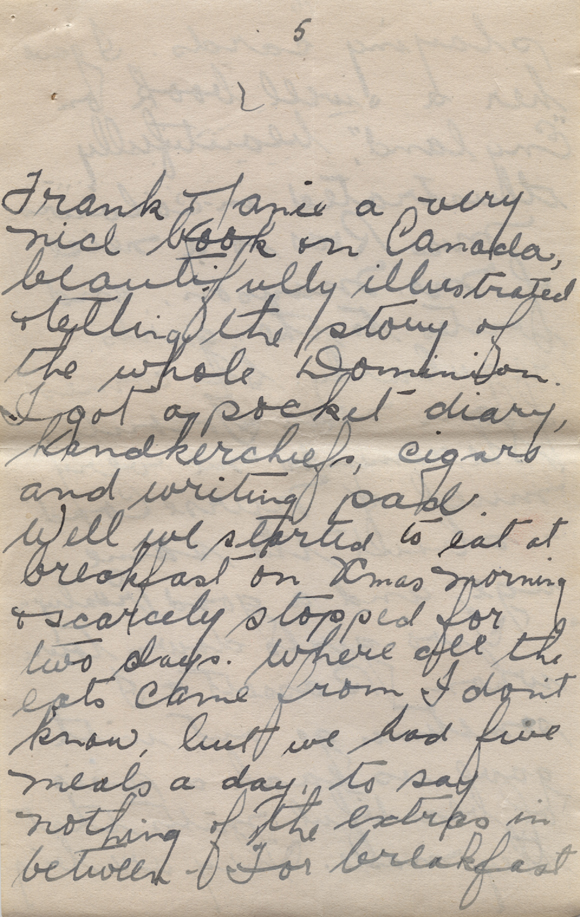 5
Frank & Janie a very
nice book on Canada,
beautifully illustrated
& telling the story of
the whole Dominion.
I got a pocket diary,
handkerchiefs, cigars
and writing pad.
Well we started to eat at
breakfast on Xmas morning
& scarcely stopped for
two days. Where all the
eats came from I don't
know, but we had five
meals a day, to say
nothing of the extras in
between. For breakfast